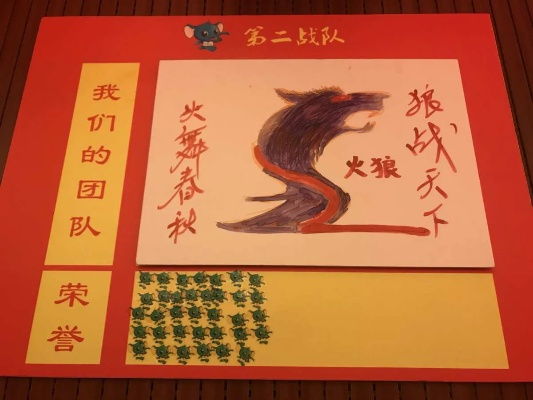 第二战队
我们的团队
火舞春秋
火狼
狼战天下
荣誉